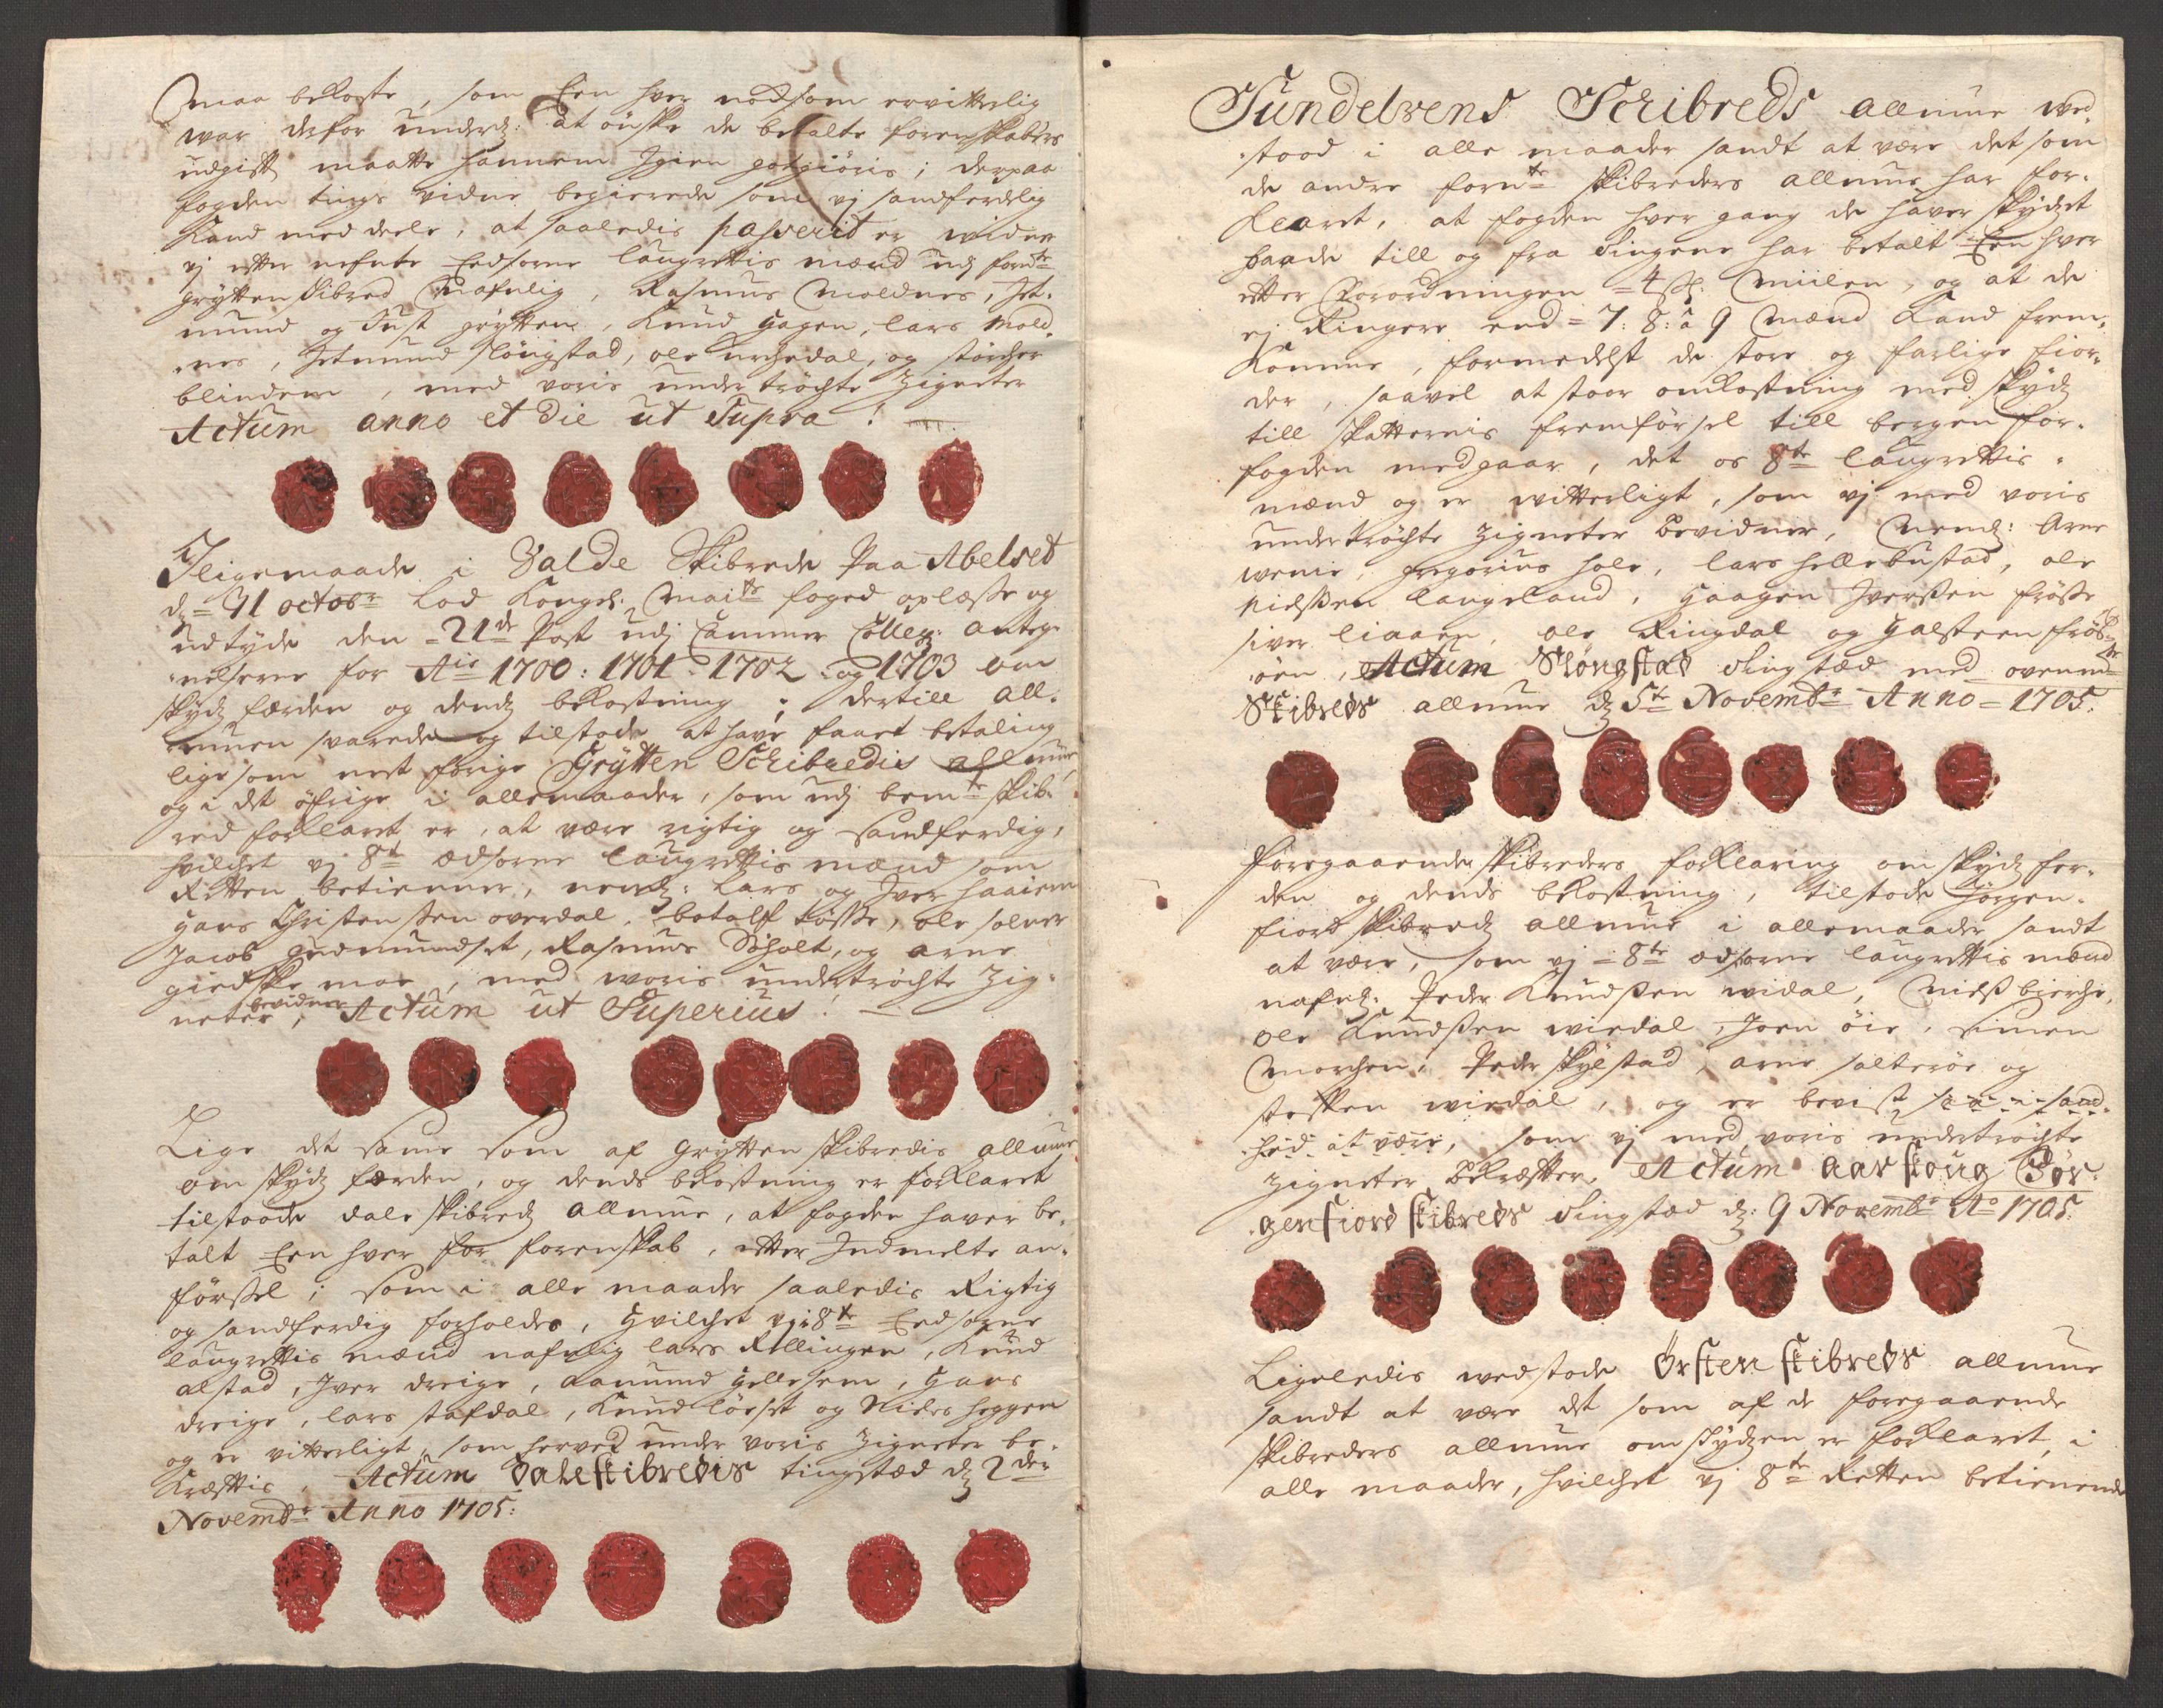 maa bekoste, som Een hver nocksom ervitterlig
war derfor underd: at önske de betalte forenskabers
udgifft maatte hannem Igien godgiöris; derpaa
fogden tings vidne begierede som vj sandferdelig
Kand med deele, at saaledis passerit er widner
vj efter nefnte Eedsorne laugrettis mænd udj fornte
grytten skibred Nafnlig, Rasmus Moldnes, Jet-
mund og Just grytten, Knud Hagen, lars Mold-
nes, Jetmund slöngstad, ole urchedal, og störcher
blindem, med voris under tröchte Zigneter
Actum anno et die ut Supra!
Iligemaade i Valde Skibrede Paa Abelset
d: 31 octobr lod Kongl: Maits foged oplæste og
udtyde den 21de Post udj Cammer Colleg: anteg-
nelserne for Aio 1700: 1701: 1702: og 1703 om
skydz færden og dendz bekostning; dertill all-
muen svarede og tilstode at have faaet betaling
lige som nest forige Grytten Schibredis allmue
og i det öfrige i allemaader, som udj bemte skib-
red forklaret er, at være rigtig og sandferdig,
hvilchet vj 8te edsorne laugrettis mænd som
Retten betienner, nemlig: Lars og Iver Haaiem
Hans Christenssen overdal, botolff tösse, ole solver
Jacob gudmundset, Rasmus Scholt, og arne
gietske moe, med woris undertröchte Zig-
neter, bevidner Actum ut Superius!
Lige det same som af Grytten skibredis allmue
om skydz færden, og dends bekostning er forklaret
tilstoode dale skibredz allmue, at fogden haver be-
talt Een hver for forenskab, etter Indmelte an-
førssel; som i alle maader saaledis Rigtig
og sandferdig forholdes, Hvilchet vj 8te Eedsorne
laugrettis mænd nafnlig lars Rellingen, Knud
alstad, Iver dreige, aamund Hellesem, Hans
dreige, lars stafdal, Knud löeset og Nicles Heggen
og er vitterligt, som herved under voris Zigneter be-
kræfftis, Actum Daleskibredis tingstæd d: 2den
Novembr Anno 1705:
Sundelvens Schibreds allmue wed-
stood i alle maader sandt at være det som
de andre fornte skibreders allmue har for-
klaret, at fogden hver gang de haver skydzet
baade till og fra tingene har betalt Een hver
etter Forordningen 4 sk: Miilen, og at de
ej Ringere end 7: 8: a 9 Mænd Kand frem-
komme, formedelst de store og farlige fior-
der, saavel at stoor omkostning med skydz
till skatternis fremførsel till bergen for
fogden medgaar, det os 8te laugrettis-
mænd og er witterligt, som vj med voris
undertröchte Zigneter bevidner, Neml: Arne
wemie, gregorius hole, lars hellebustad, ole
Nielssen langeland, Haagen Iverssen frösse
siver liaaen, ole Ringdal og Halsteen frös-
öen, Actum Slöngstad tingstæd med ovenmte
Skibreds allmue d: 5te Novembr Anno 1705.
foregaaende skibreders forklaring om skydz fer-
den og dends bekostning, tilstode Jörgen-
fiord skibredz allmue i allemaader sandt
at være, som vj 8te edsorne laugrettis mænd
nafnl: Peder Knudssen widal, Nielss bierche,
ole Knudssen wiedal, Joen öie, simen
Morchen, Peder skylstad, arne salteröe og
steffen wiedal, og er bevist saa i sand-
hed at være, som vj med voris undertröchte
Zigneter bekræffter, Actum aarskoug Jör-
genfiord skibreds tingstæd d: 9 Novembr Ao 1705:
Ligeledis wedstode Örsten skibreds allmue
sandt at være det som af de foregaaende
skibreders allmue om skydzen er forklaret, i
alle maader, hvilchet vj 8te Retten betienende